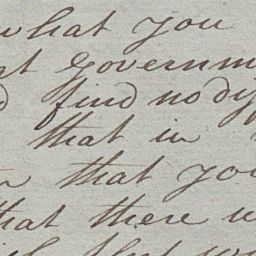 what you
Governm
find no dif
that in
that you
that there w
that